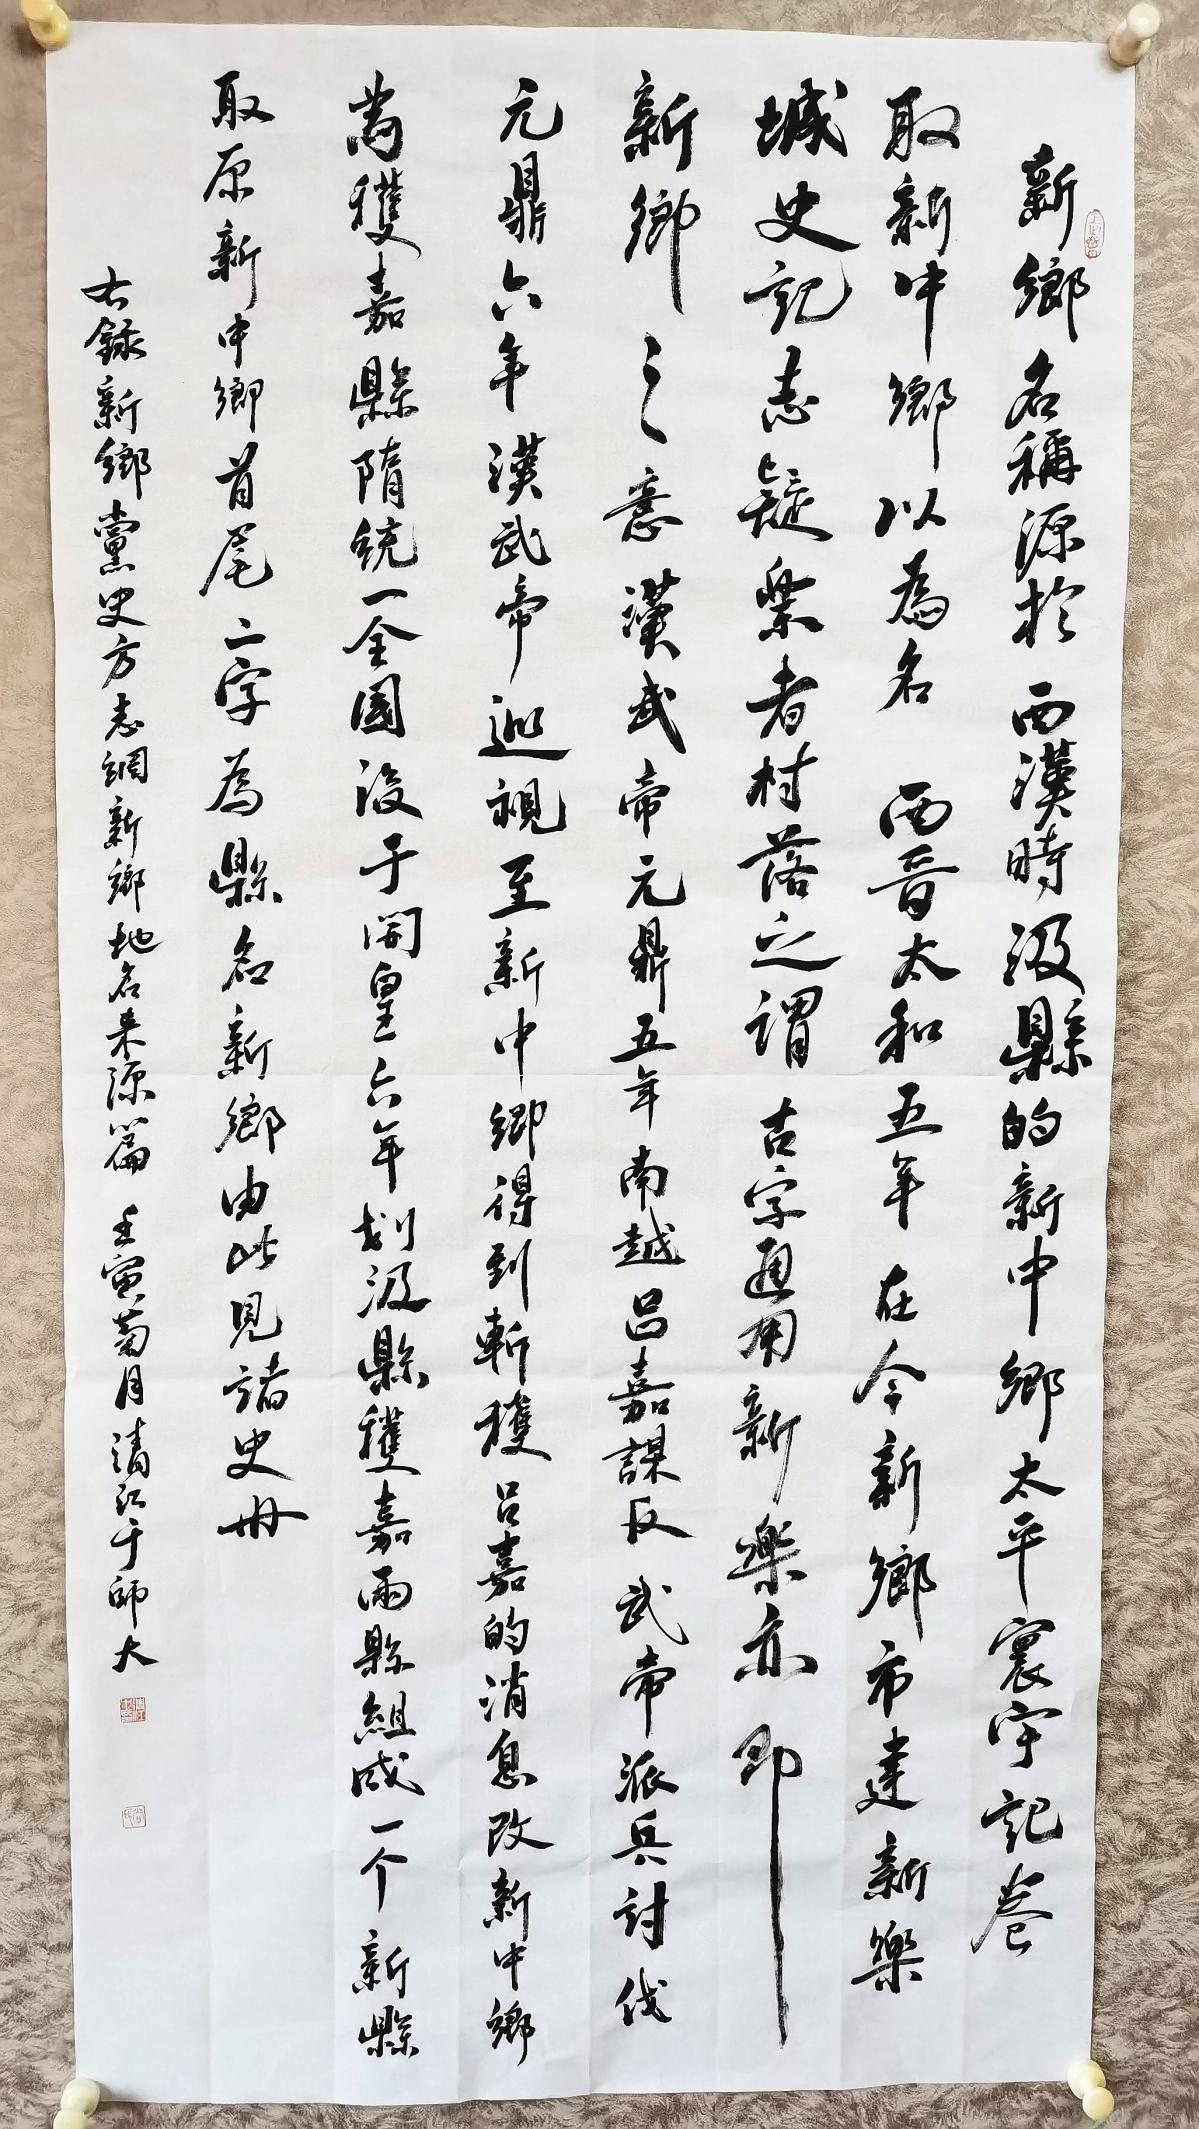 新鄉名稱源於西漢時汲縣的新中鄉太平寰宇記卷
取新中鄉以為名西晉太和五年在今新鄉市建新樂
城史記志疑樂者村落之謂古字通用新樂亦即
新鄉之意漢武帝元鼎五年南越呂嘉謀反武帝派兵討伐
元鼎六年漢武帝巡視至新中鄉得到斬穫呂嘉的消息改新中鄉
為穫嘉縣隋統一全國後于開皇六年划汲縣穫嘉兩縣組成一个新縣
取原新中鄉首尾二字為縣名新鄉由此見諸史冊
右錄新鄉黨史方志網新鄉地名来源篇壬寅菊月清江于師大